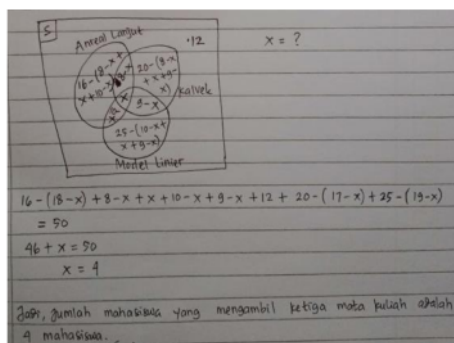 S
Anreal Lanjut
·12
x = ?
16-(8-x+
x+10-x)
8-x
20-(8-x
+x+9-
x)
Kalvek
x
9-x
25-(10-x+
x+9-x)
Model Linier
16-(18-x)+8-x+x+10-x+9-x+12+20-(17-x)+25-(19-x)
= 50
46 + x = 50
x = 4
Jadi, Jumlah mahasiswa yang mengambil ketiga mata kuliah adalah
4 mahasiswa.